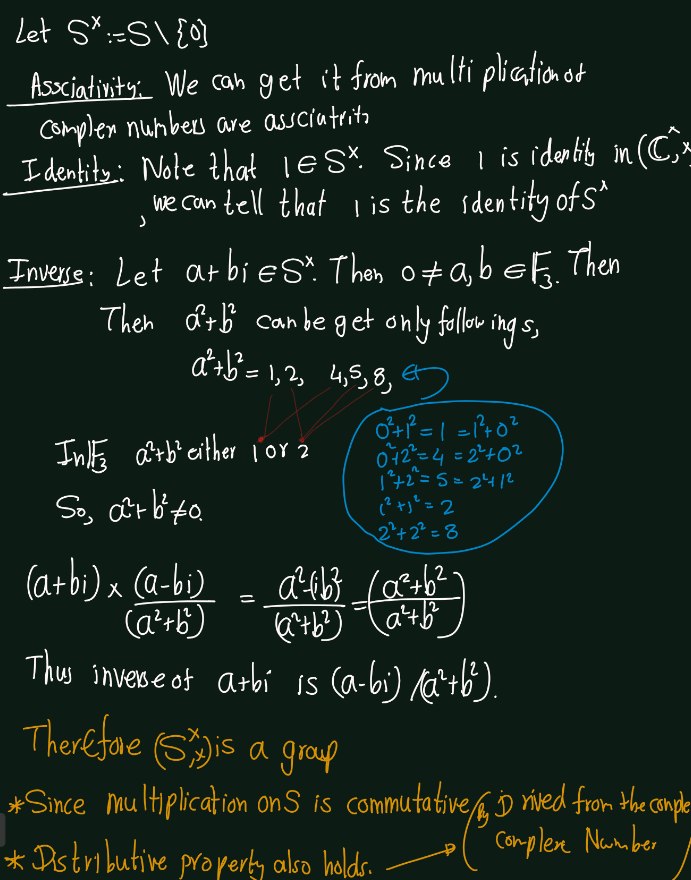 Let S^x := S \ {0}
Assciativity: We can get it from multiplication of
complex numbers are assciatrity
Identity: Note that 1 ∈ S^x. Since 1 is identity in (ℂ^x, x
, we can tell that 1 is the identity of S^x
Inverse: Let a+bi ∈ S^x. Then 0 ≠ a,b ∈ F_3. Then
Then a²+b² can be get only followings,
a²+b² = 1, 2, 4, 5, 8,
0²+1² = 1 = 1²+0²
0²+2² = 4 = 2²+0²
1²+2² = 5 = 2²+1²
1²+1² = 2
2²+2² = 8
In F_3 a²+b² either 1 or 2
So, a²+b² ≠ 0.
(a+bi) x (a-bi)/(a²+b²) = a²-(ib)²/(a²+b²) = (a²+b²/a²+b²)
Thus inverse of a+bi is (a-bi)/(a²+b²).
Therefore (S^x, x) is a group
*Since multiplication on S is commutative (By Drived from the comple
complex Number
* Distributive property also holds.